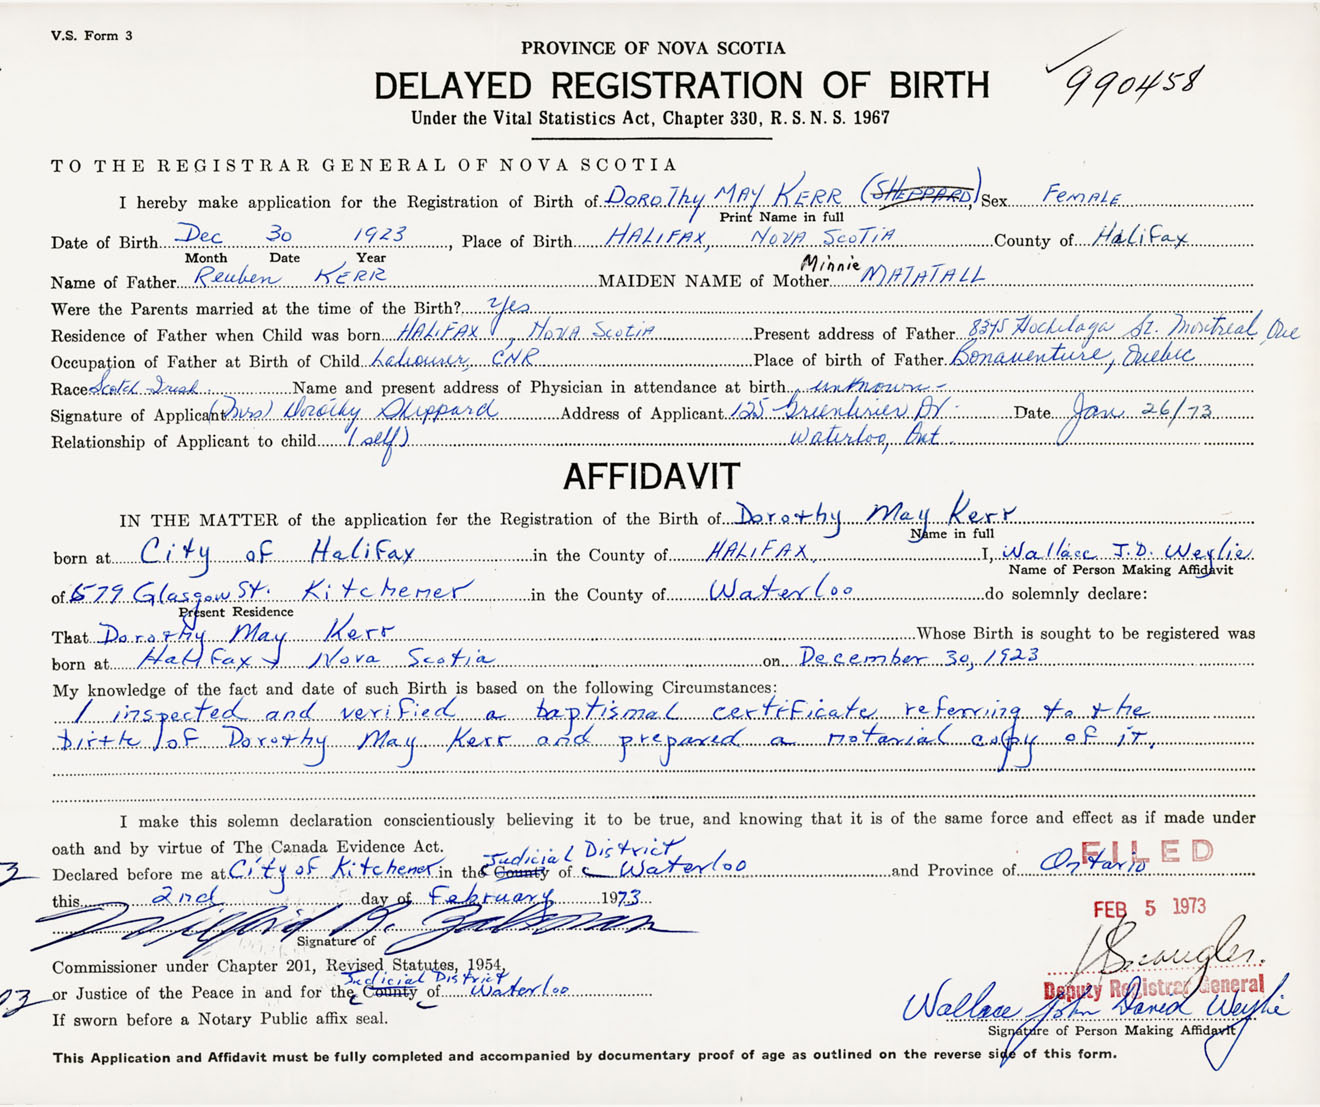 V.S. Form 3
PROVINCE OF NOVA SCOTIA
DELAYED REGISTRATION OF BIRTH
990458
Under the Vital Statistics Act, Chapter 330, R. S. N. S. 1967
TO THE REGISTRAR GENERAL OF NOVA SCOTIA
I hereby make application for the Registration of Birth of DOROThy MAY KERR (SHEPPARD) Sex FEMALE
Print Name in full
Date of Birth Dec 30 1923, Place of Birth HALIFAX, NOVA SCOTIA County of HaliFax
Month Date Year
Name of Father Reuben KERR MAIDEN NAME of Mother Minnie MATATALL
Were the Parents married at the time of the Birth? Yes
Residence of Father when Child was born HALIFAX, NOVA SCOTIA Present address of Father 8345 Hochelaga St. Montreal, Que
Occupation of Father at Birth of Child Labourer, CNR Place of birth of Father Bonaventure, Quebec
Race Scotch Irish Name and present address of Physician in attendance at birth unknown -
Signature of Applicant (Mrs) Dorothy Sheppard Address of Applicant 125 Greenbrier Dr. Date Jan 26/73
Relationship of Applicant to child (self) Waterloo, Ont.
AFFIDAVIT
IN THE MATTER of the application for the Registration of the Birth of Dorothy May Kerr
Name in full
born at City of Halifax in the County of HALIFAX, I, Wallace J.D. Weylie
Name of Person Making Affidavit
of 579 Glasgow St. Kitchener in the County of Waterloo do solemnly declare:
Present Residence
That Dorothy May Kerr Whose Birth is sought to be registered was
born at Halifax, Nova Scotia on December 30, 1923
My knowledge of the fact and date of such Birth is based on the following Circumstances:
I inspected and verified a baptismal certificate referring to the
birth of Dorothy May Kerr and prepared a notarial copy of it.
I make this solemn declaration conscientiously believing it to be true, and knowing that it is of the same force and effect as if made under
oath and by virtue of The Canada Evidence Act.
FILED
Judicial District
Declared before me at City of Kitchener in the County of Waterloo and Province of Ontario
this 2nd day of February 1973
FEB 5 1973
Signature of
Commissioner under Chapter 201, Revised Statutes, 1954,
Judicial District
or Justice of the Peace in and for the County of Waterloo
Deputy Registrar General
Wallace John David Weylie
If sworn before a Notary Public affix seal.
Signature of Person Making Affidavit
This Application and Affidavit must be fully completed and accompanied by documentary proof of age as outlined on the reverse side of this form.